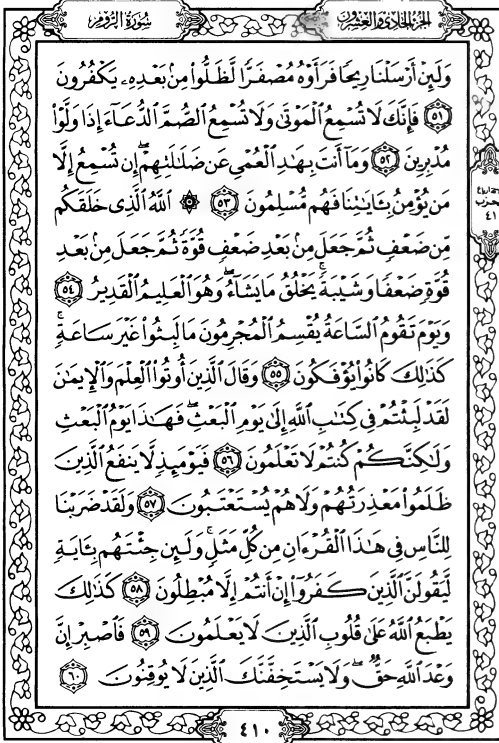 الجزء الحادي والعشرون سورة الروم
وَلَئِنْ أَرْسَلْنَا رِيحًا فَرَأَوْهُ مُصْفَرًّا لَّظَلُّوا۟ مِنۢ بَعْدِهِۦ يَكْفُرُونَ
﴿٥١﴾ فَإِنَّكَ لَا تُسْمِعُ ٱلْمَوْتَىٰ وَلَا تُسْمِعُ ٱلصُّمَّ ٱلدُّعَآءَ إِذَا وَلَّوْا۟
مُدْبِرِينَ ﴿٥٢﴾ وَمَآ أَنتَ بِهَٰدِ ٱلْعُمْىِ عَن ضَلَٰلَتِهِمْ ۖ إِن تُسْمِعُ إِلَّا
مَن يُؤْمِنُ بِـَٔايَٰتِنَا فَهُم مُّسْلِمُونَ ﴿٥٣﴾ ۞ ٱللَّهُ ٱلَّذِى خَلَقَكُم
مِّن ضَعْفٍ ثُمَّ جَعَلَ مِنۢ بَعْدِ ضَعْفٍ قُوَّةً ثُمَّ جَعَلَ مِنۢ بَعْدِ
قُوَّةٍ ضَعْفًا وَشَيْبَةً ۚ يَخْلُقُ مَا يَشَآءُ ۖ وَهُوَ ٱلْعَلِيمُ ٱلْقَدِيرُ ﴿٥٤﴾
وَيَوْمَ تَقُومُ ٱلسَّاعَةُ يُقْسِمُ ٱلْمُجْرِمُونَ مَا لَبِثُوا۟ غَيْرَ سَاعَةٍ ۚ
كَذَٰلِكَ كَانُوا۟ يُؤْفَكُونَ ﴿٥٥﴾ وَقَالَ ٱلَّذِينَ أُوتُوا۟ ٱلْعِلْمَ وَٱلْإِيمَٰنَ
لَقَدْ لَبِثْتُمْ فِى كِتَٰبِ ٱللَّهِ إِلَىٰ يَوْمِ ٱلْبَعْثِ ۖ فَهَٰذَا يَوْمُ ٱلْبَعْثِ
وَلَٰكِنَّكُمْ كُنتُمْ لَا تَعْلَمُونَ ﴿٥٦﴾ فَيَوْمَئِذٍ لَّا يَنفَعُ ٱلَّذِينَ
ظَلَمُوا۟ مَعْذِرَتُهُمْ وَلَا هُمْ يُسْتَعْتَبُونَ ﴿٥٧﴾ وَلَقَدْ ضَرَبْنَا
لِلنَّاسِ فِى هَٰذَا ٱلْقُرْءَانِ مِن كُلِّ مَثَلٍ ۚ وَلَئِن جِئْتَهُم بِـَٔايَةٍ
لَّيَقُولَنَّ ٱلَّذِينَ كَفَرُوٓا۟ إِنْ أَنتُمْ إِلَّا مُبْطِلُونَ ﴿٥٨﴾ كَذَٰلِكَ
يَطْبَعُ ٱللَّهُ عَلَىٰ قُلُوبِ ٱلَّذِينَ لَا يَعْلَمُونَ ﴿٥٩﴾ فَٱصْبِرْ إِنَّ
وَعْدَ ٱللَّهِ حَقٌّ ۖ وَلَا يَسْتَخِفَّنَّكَ ٱلَّذِينَ لَا يُوقِنُونَ ﴿٦٠﴾
٤١٠